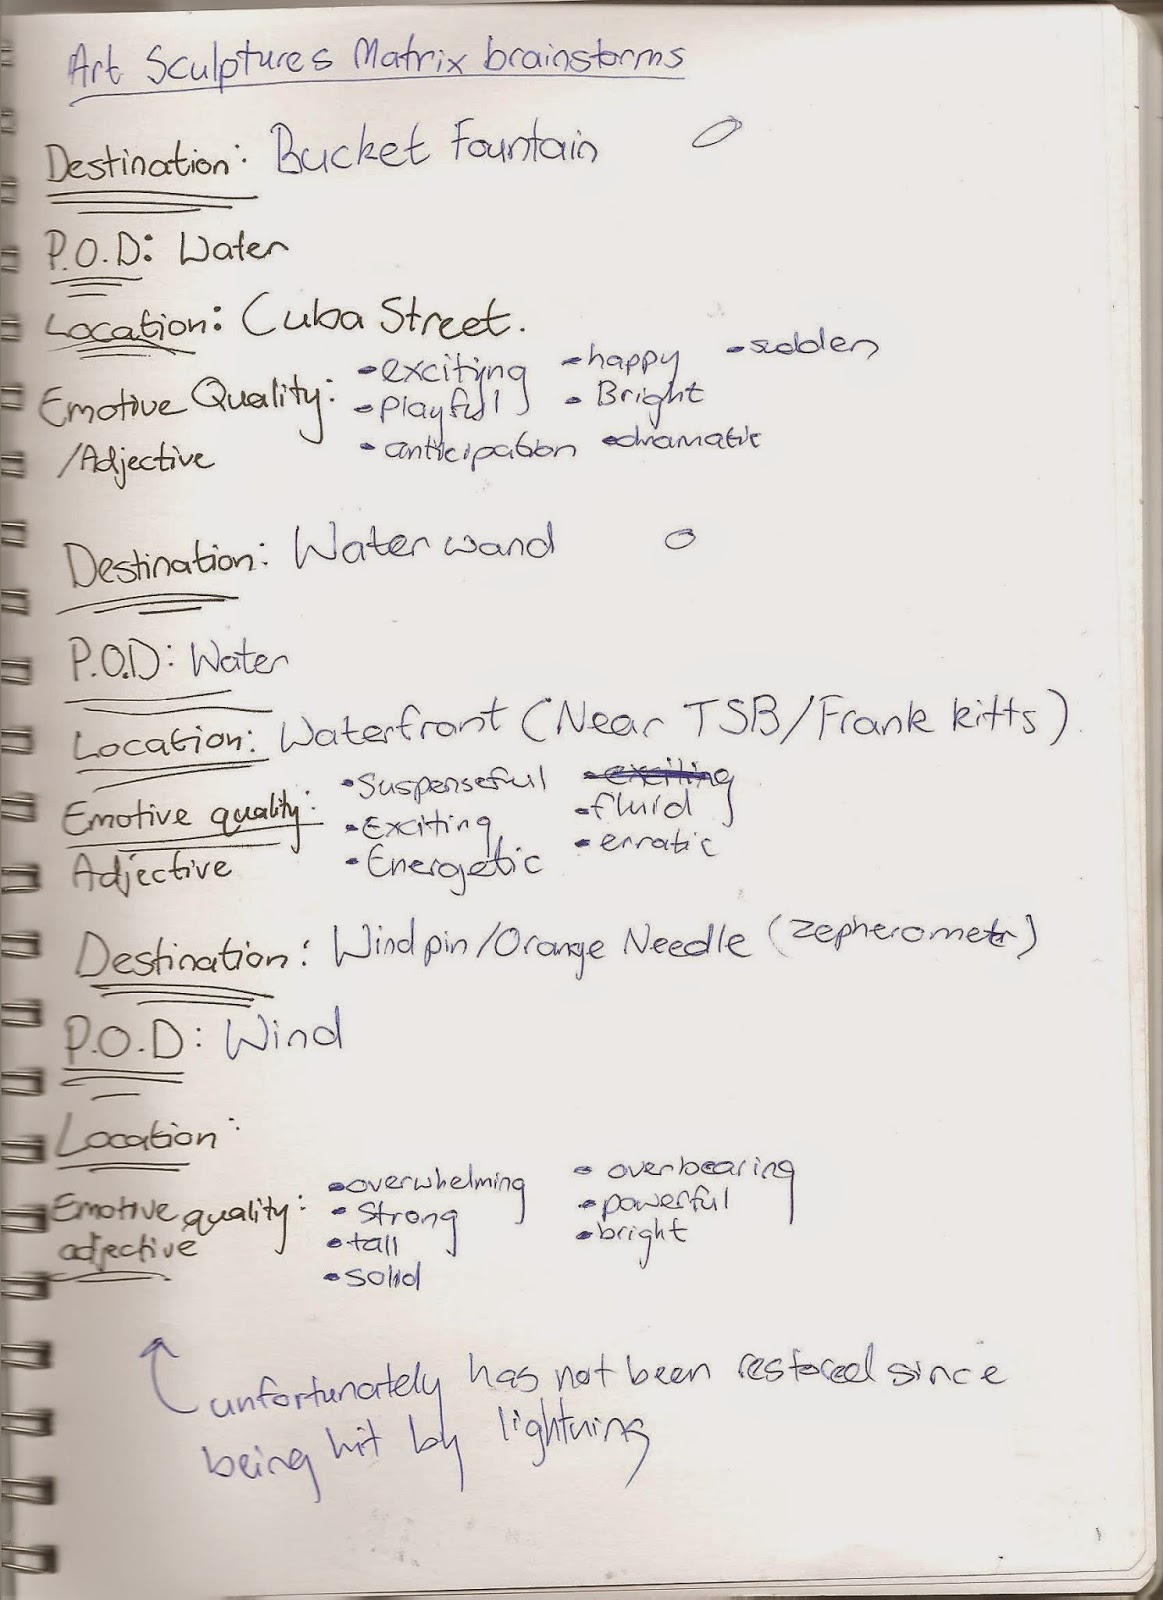 Art Sculptures Matrix brainstorms
Destination: Bucket Fountain
P.O.D: Water
Location: Cuba Street.
Emotive Quality: - exciting - happy - sudden
- playful - Bright
/Adjective - anticipation - dramatic
Destination: Water wand
P.O.D: Water
Location: Waterfront (Near TSB/Frank kitts)
Emotive quality: - Suspenseful - exciting
- Exciting - fluid
Adjective - Energetic - erratic
Destination: Wind pin/Orange Needle (zepherometr)
P.O.D: Wind
Location:
Emotive quality: - overwhelming - overbearing
adjective - Strong - powerful
- tall - bright
- solid
unfortunately has not been restored since
being hit by lightning